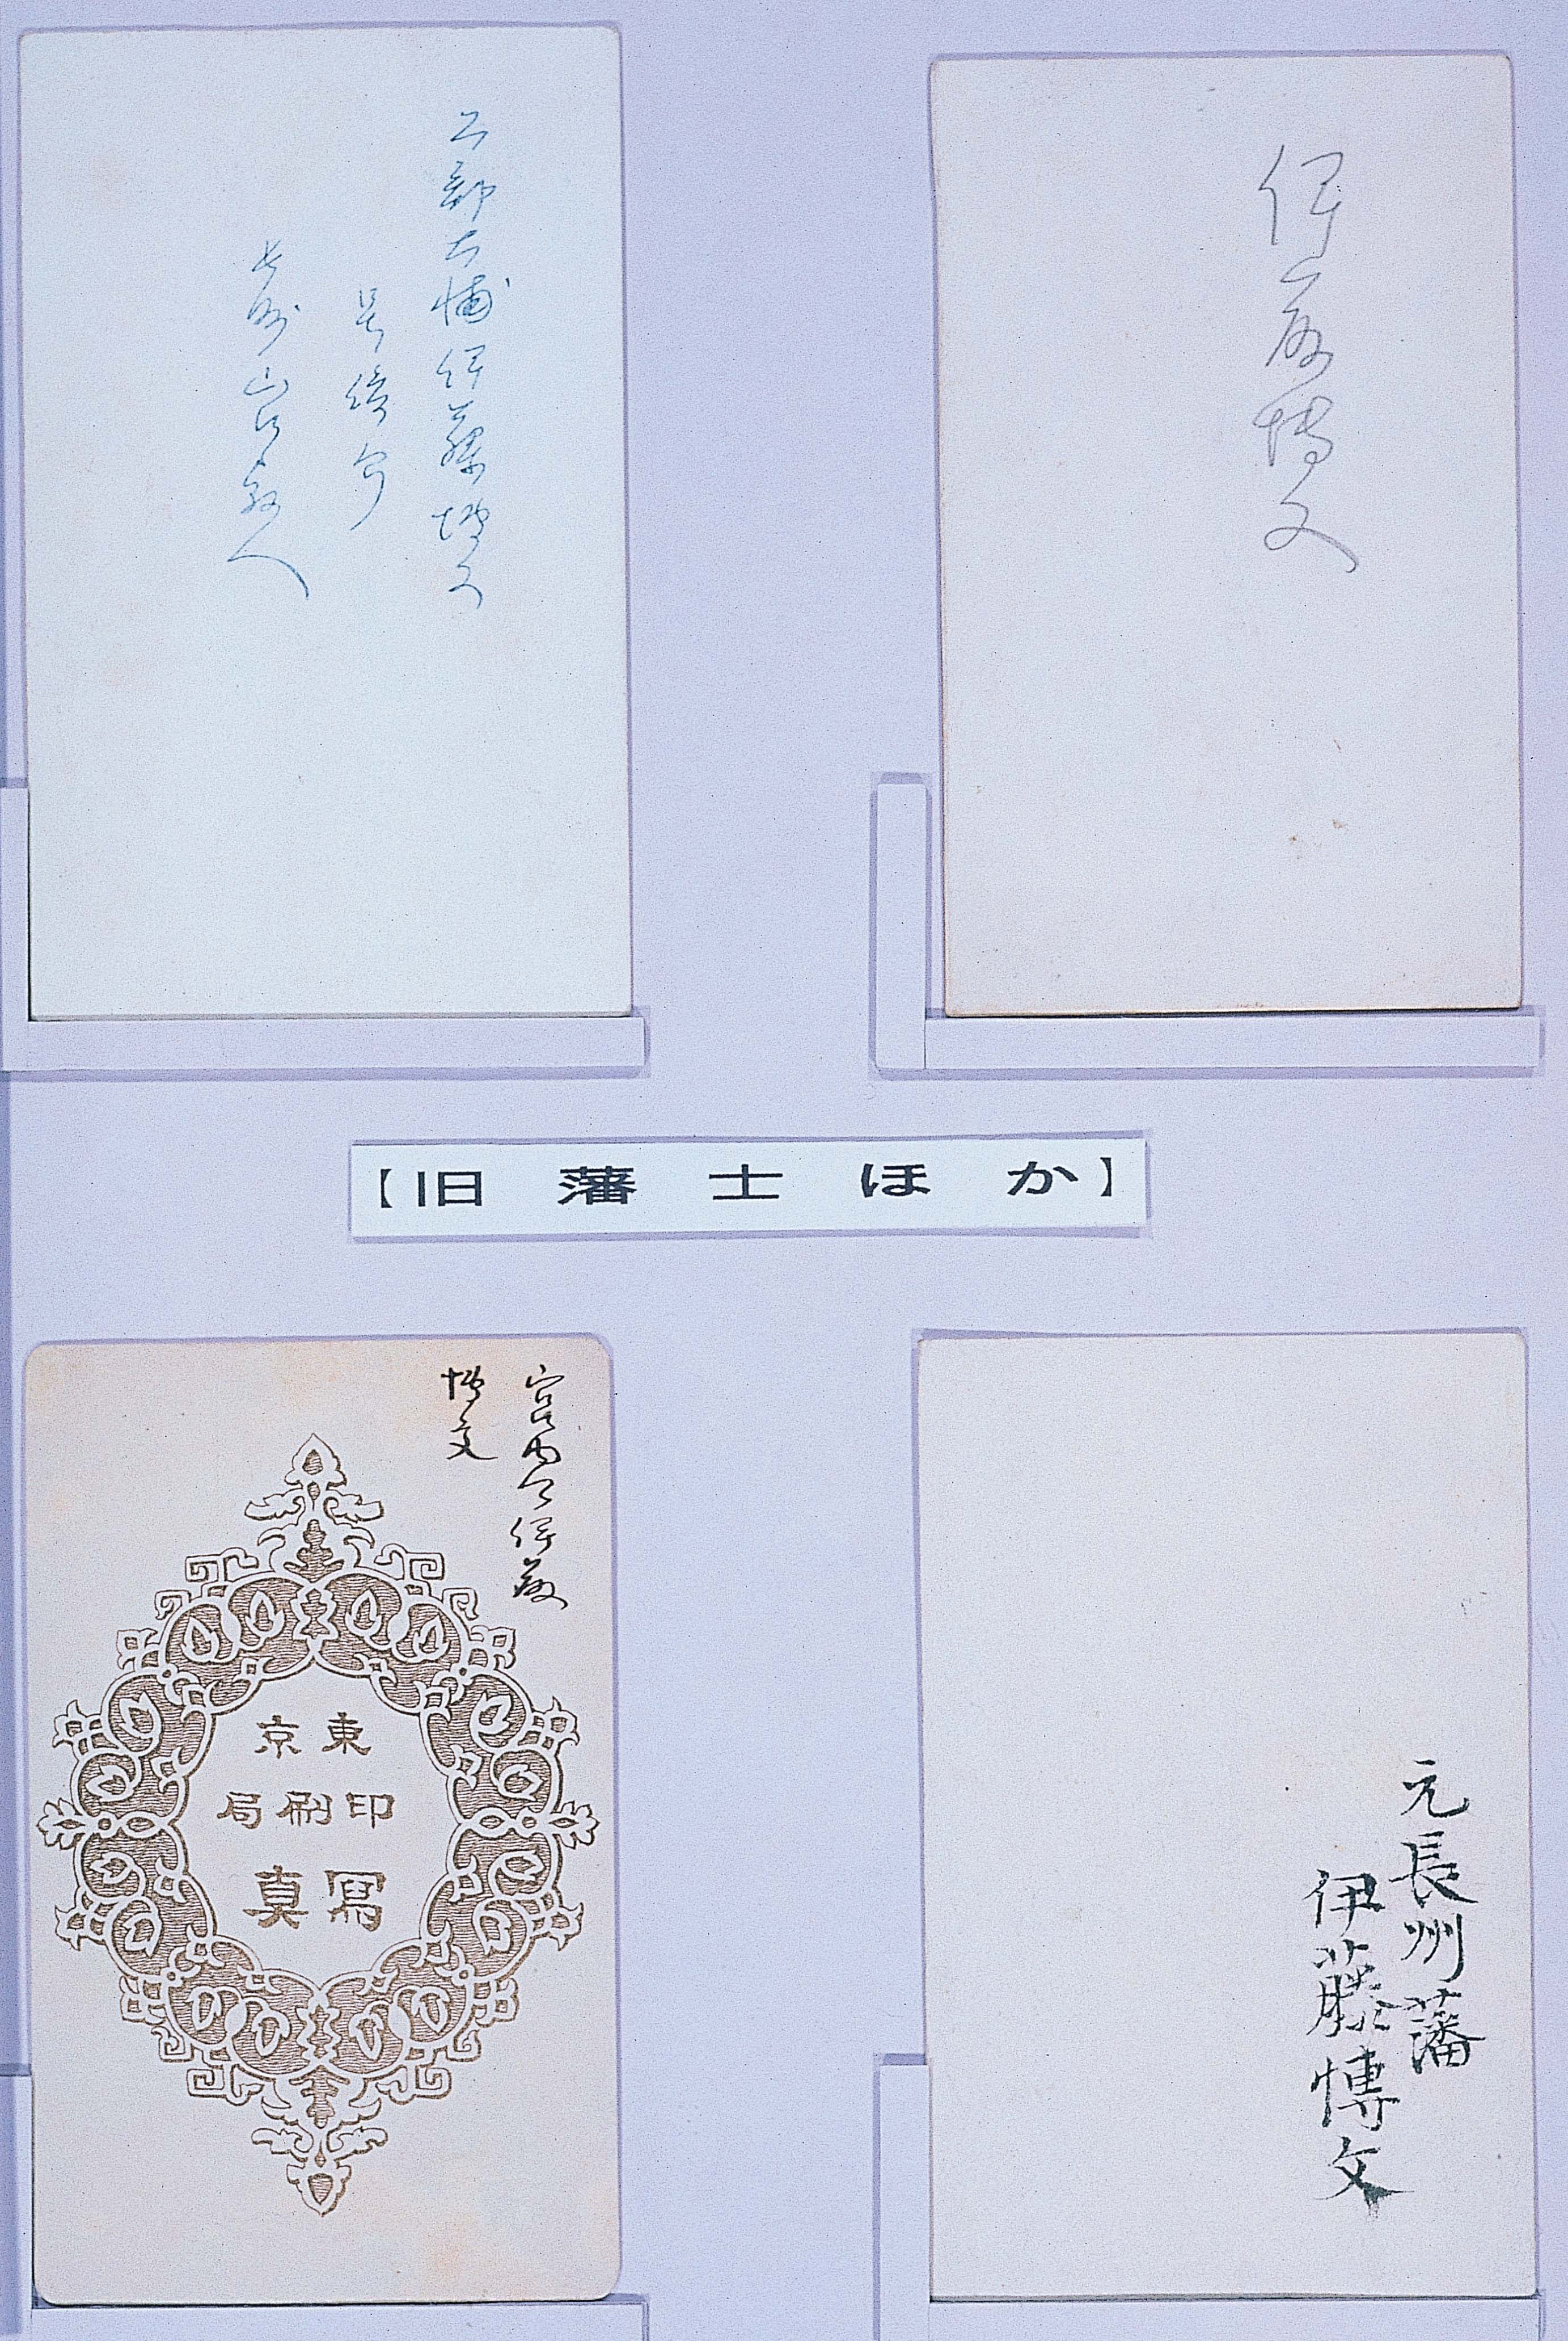 伊藤博文
工部大輔伊藤博文
号俊介
長州山口縣人
【旧藩士ほか】
元長州藩
伊藤博文
宮内卿伊藤
博文
東京
印刷局
寫真